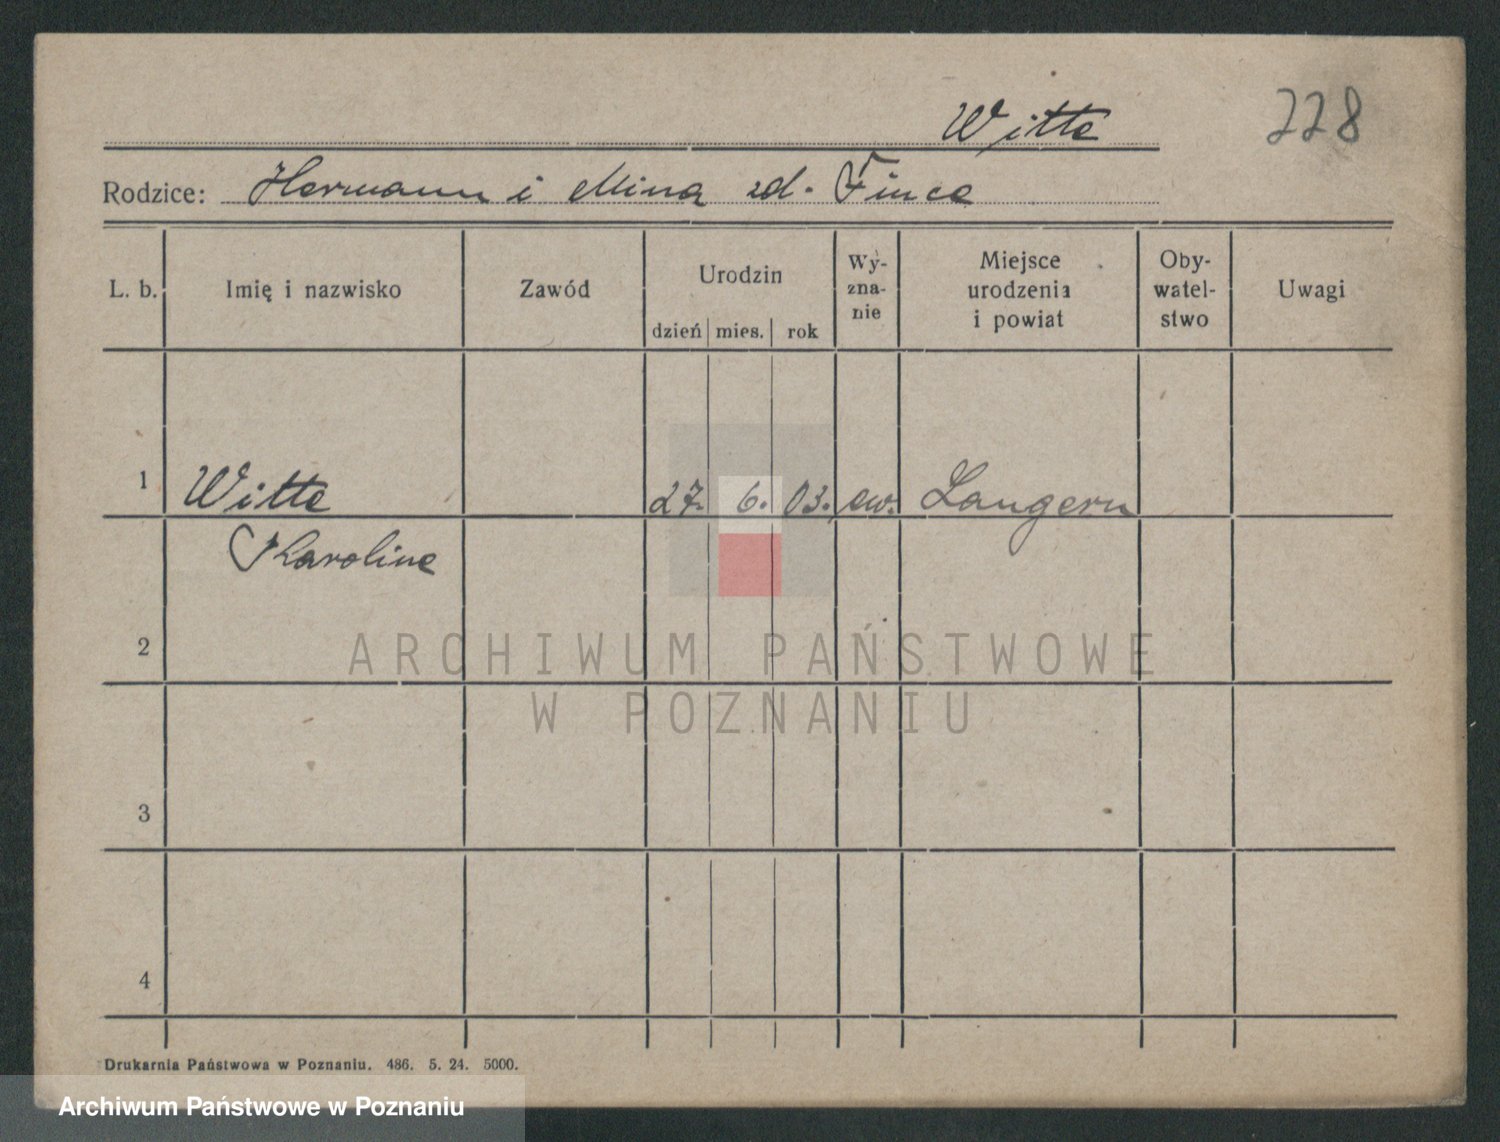 Witte
228
Rodzice: Hermann i Mina zd. Fince
L. b.
Imię i nazwisko
Zawód
Urodzin
dzień mies. rok
Wy-
zna-
nie
Miejsce
urodzenia
i powiat
Oby-
watel-
stwo
Uwagi
1 Witte 27. 6. 03. ew. Langern
Karoline
2
3
4
ARCHIWUM PAŃSTWOWE
W POZNANIU
Drukarnia Państwowa w Poznaniu. 486. 5. 24. 5000.
Archiwum Państwowe w Poznaniu